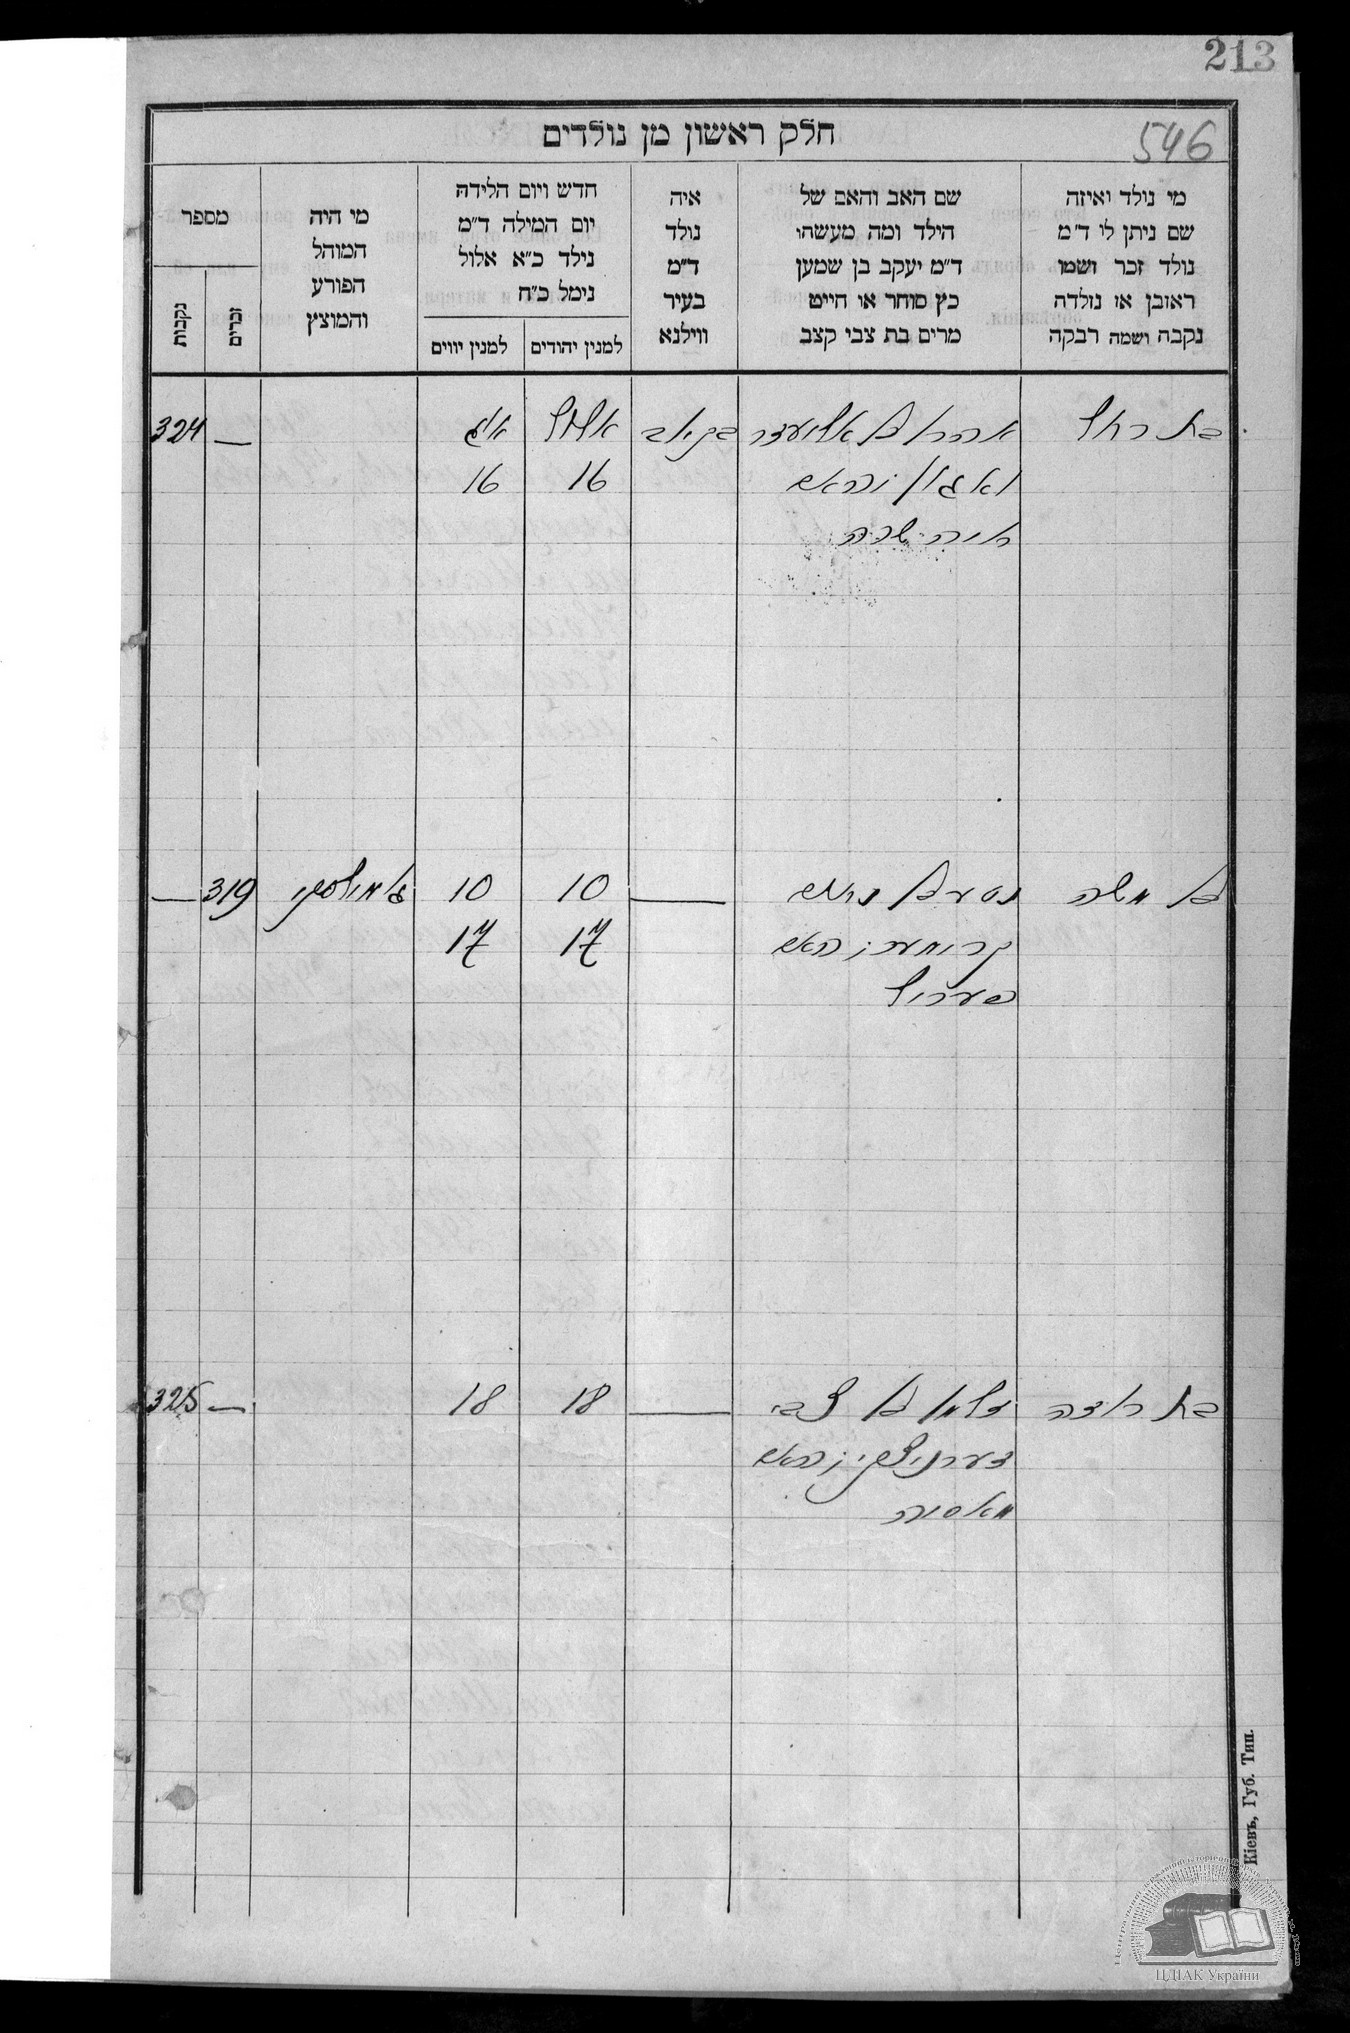 213
546
חלק ראשון מן נולדים
מי נולד ואיזה
שם ניתן לי ד״מ
נולד זכר ושמו
ראובן או נולדה
נקבה ושמה רבקה
שם האב והאם של
הילד ומה מעשהו
ד״מ יעקב בן שמעון
כץ סוחר או חייט
מרים בת צבי קצב
איה
נולד
ד״מ
בעיר
ווילנא
חדש ויום הלידה
יום המילה ד״מ
נילד כ״א אלול
נימל כ״ח
למנין יהודים
למנין יווים
מי היה
המוהל
הפורע
והמוצץ
מספר
זכרים
נקבות
בת רחל
אהרן בן אליעזר
והאם
חיה שרה
אלול
16
16
—
324
בן משה
נטע בן
והאם
—
10
17
10
17
319
—
בת
זלמן בן צבי
והאם
—
18
18
—
325
Кіевъ, Губ. Тип.
ЦДІАК України